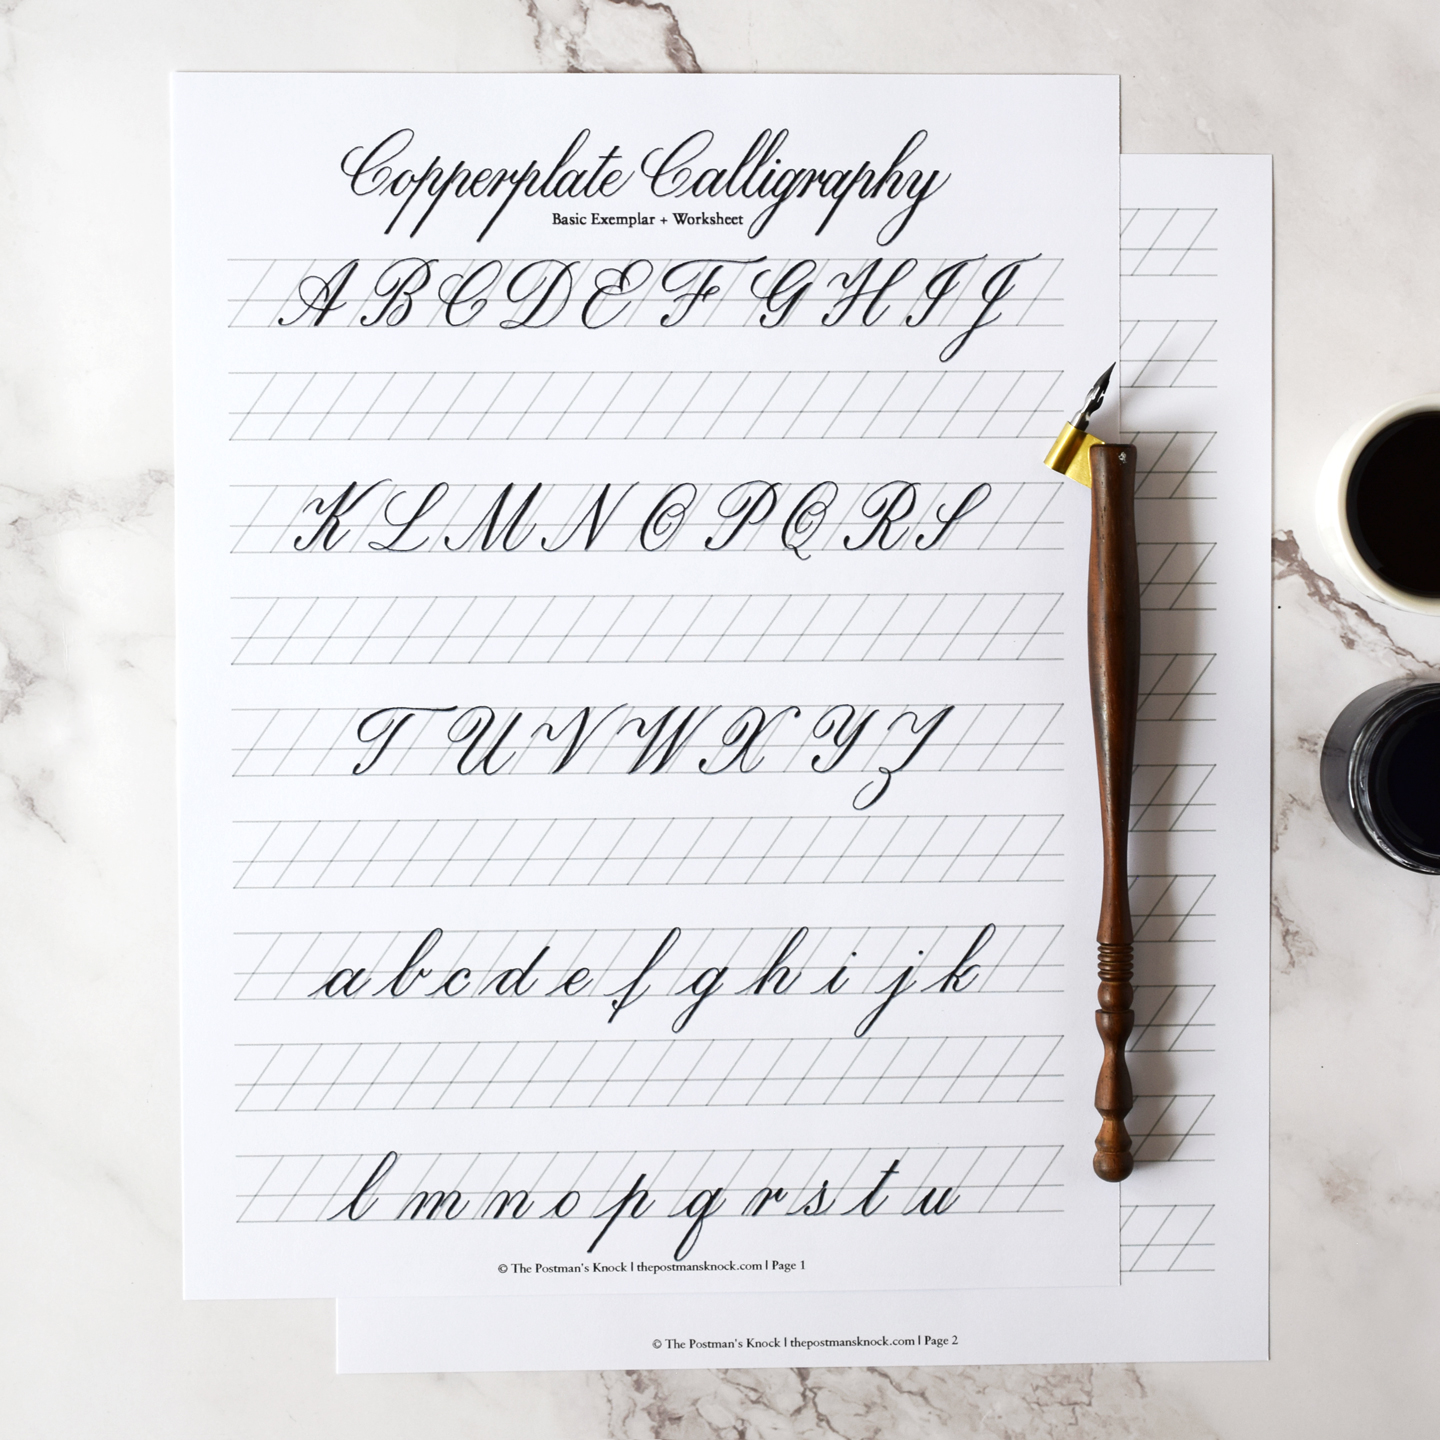 Copperplate Calligraphy
Basic Exemplar + Worksheet
A B C D E F G H I J
K L M N O P Q R S
T U V W X Y Z
a b c d e f g h i j k
l m n o p q r s t u
© The Postman's Knock | thepostmansknock.com | Page 1
© The Postman's Knock | thepostmansknock.com | Page 2